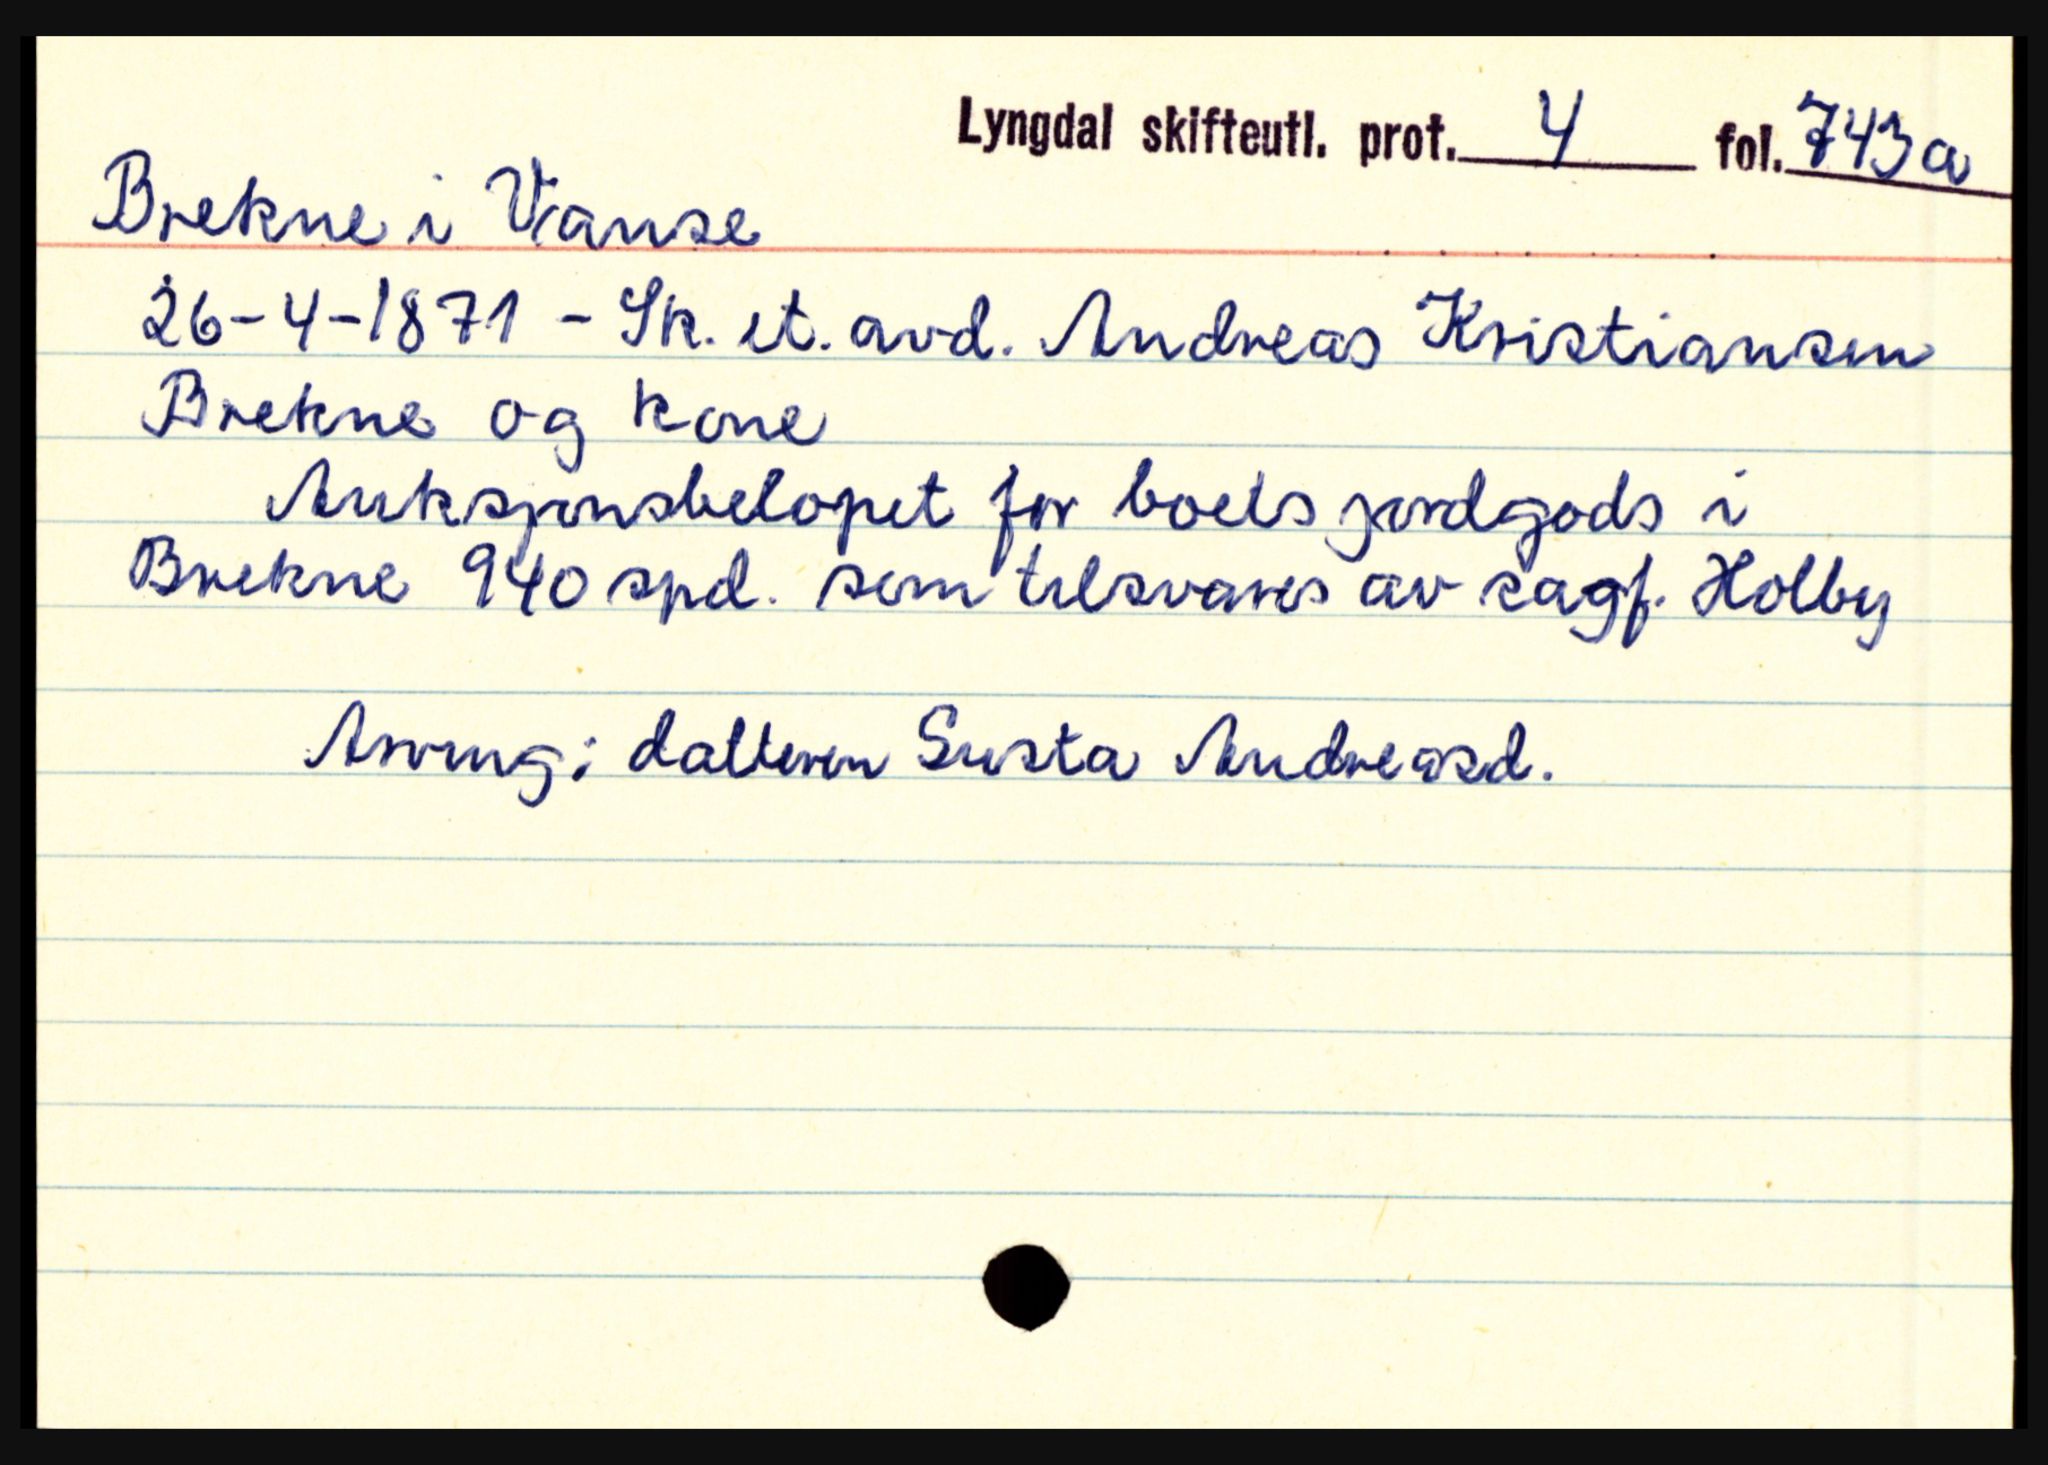 Lyngdal skifteutl. prot. 4 fol. 743a
Brekne i Vanse
26-4-1871 - Sk. et. avd. Andreas Kristiansen
Brekne og kone
Auksjonsbelopet for boets jordgods i
Brekne 940 spd. som tilsvares av sagf. Holby
Arving: datteren Susta Andreasd.